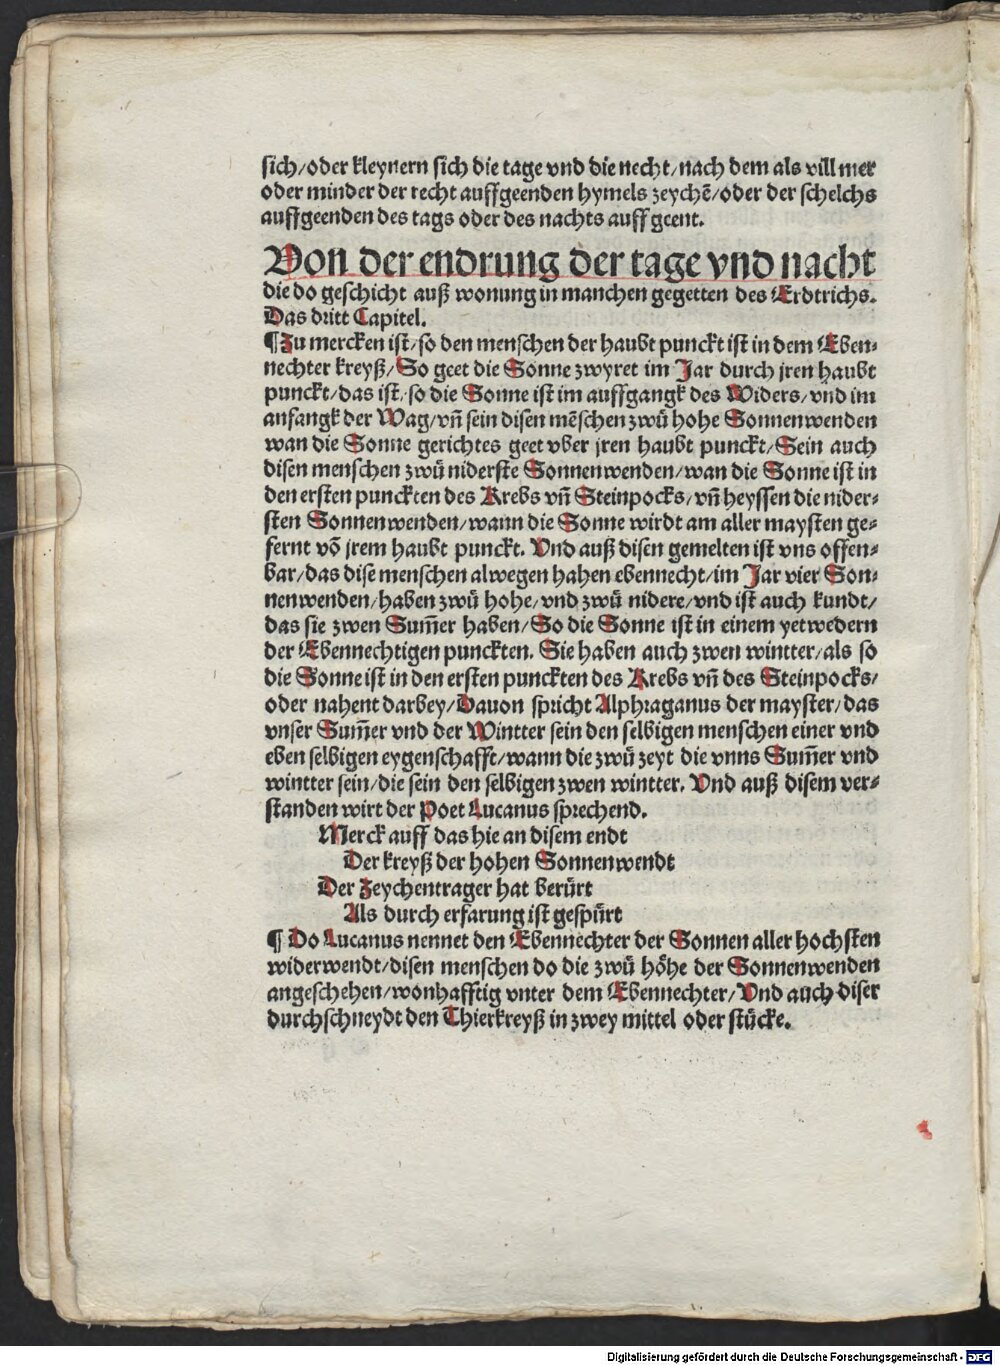 sich/oder kleynern sich die tage vnd die necht/nach dem als vill mer
oder minder der recht auffgeenden hymels zeychē/oder der schelchs
auffgeenden des tags oder des nachts auffgeent.
Von der endrung der tage vnd nacht
die do geschicht auß wonung in manchen gegetten des Erdtrichs.
Das dritt Capitel.
¶Zu mercken ist/so den menschen der haubt punckt ist in dem Eben⸗
nechter kreyß/So geet die Sonne zwyret im Jar durch jren haubt
punckt/das ist/so die Sonne ist im auffgangk des Widers/vnd im
anfangk der Wag/vn̄ sein disen mēschen zwů hohe Sonnenwenden
wan die Sonne gerichtes geet vber jren haubt punckt/Sein auch
disen menschen zwů niderste Sonnenwenden/wan die Sonne ist in
den ersten punckten des Krebs vn̄ Steinpocks/vn̄ heyssen die nider⸗
sten Sonnenwenden/wann die Sonne wirdt am aller maysten ge⸗
fernt vō jrem haubt punckt. Vnd auß disen gemelten ist vns offen⸗
bar/das dise menschen alwegen hahen ebennecht/im Jar vier Son⸗
nenwenden/haben zwů hohe/vnd zwů nidere/vnd ist auch kundt/
das sie zwen Sum̄er haben/So die Sonne ist in einem yetwedern
der Ebennechtigen punckten. Sie haben auch zwen wintter/als so
die Sonne ist in den ersten punckten des Krebs vn̄ des Steinpocks/
oder nahent darbey/Dauon spricht Alphraganus der mayster/das
vnser Sum̄er vnd der Wintter sein den selbigen menschen einer vnd
eben selbigen eygenschafft/wann die zwů zeyt die vnns Sum̄er vnd
wintter sein/die sein den selbigen zwen wintter. Vnd auß disem ver⸗
standen wirt der Poet Lucanus sprechend.
Merck auff das hie an disem endt
Der kreyß der hohen Sonnenwendt
Der Zeychentrager hat berürt
Als durch erfarung ist gespürt
¶ Do Lucanus nennet den Ebennechter der Sonnen aller hochsten
widerwendt/disen menschen do die zwů höhe der Sonnenwenden
angeschehen/wonhafftig vnter dem Ebennechter/Vnd auch diser
durchschneydt den Thierkreyß in zwey mittel oder stücke.
Digitalisierung gefördert durch die Deutsche Forschungsgemeinschaft - DFG